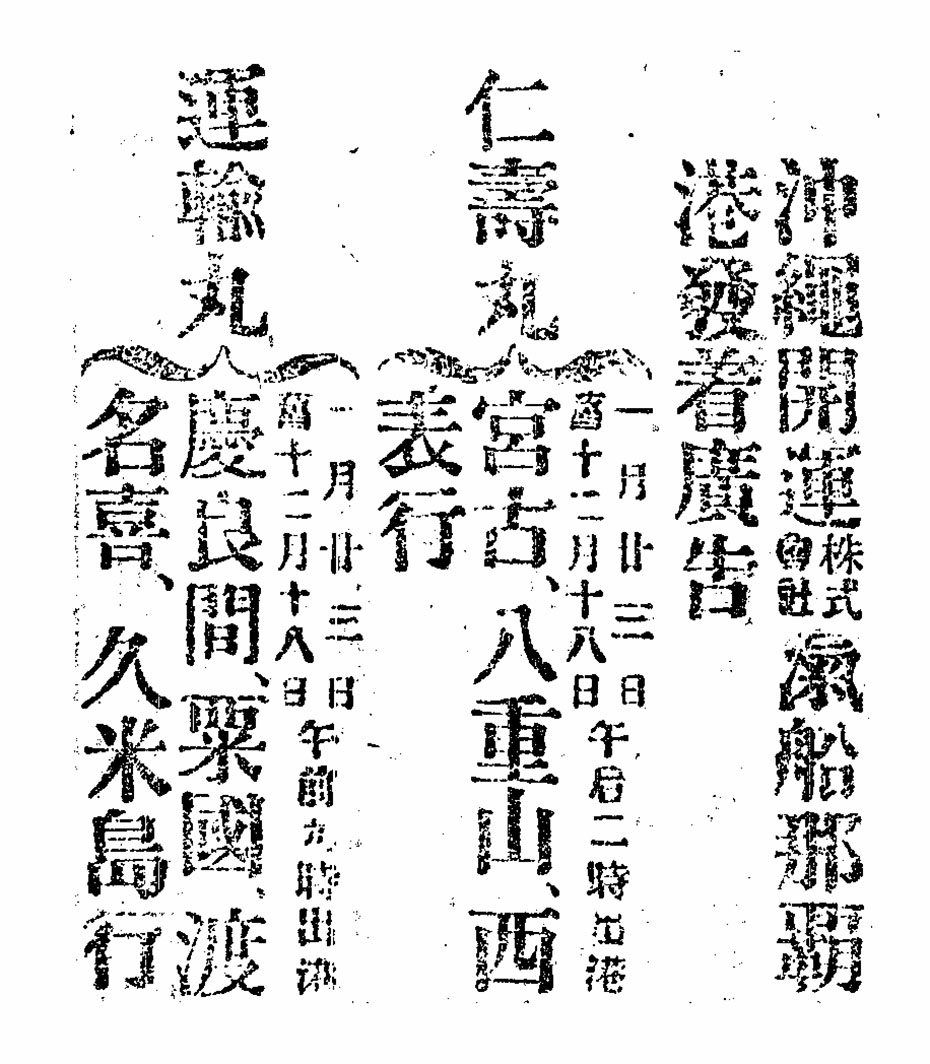 沖繩開運株式會社滊船那覇
港發着廣告
仁壽丸
一月廿三日
舊十二月十八日
午后二時出港
宮古、八重山、西
表行
運輸丸
一月廿三日
舊十二月十八日
午前九時出港
慶良間、粟國、波
名喜、久米島行